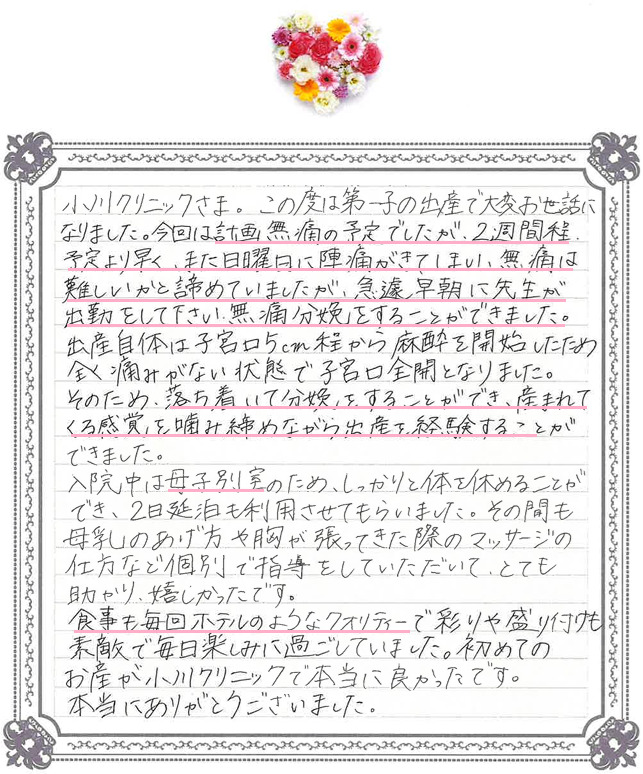 小川クリニックさま。この度は第一子の出産で大変お世話に
なりました。今回は計画無痛の予定でしたが、2週間程、
予定より早く、また日曜日に陣痛がきてしまい、無痛は
難しいかと諦めていましたが、急遽早朝に先生が
出勤をして下さい無痛分娩をすることができました。
出産自体は子宮口5cm程から麻酔を開始したため
全く痛みがない状態で子宮口全開となりました。
そのため、落ち着いて分娩をすることができ、産まれて
くる感覚を噛み締めながら出産を経験することが
できました。
入院中は母子別室のため、しっかりと体を休めることが
でき、2日延泊も利用させてもらいました。その間も
母乳のあげ方や胸が張ってきた際のマッサージの
仕方など個別で指導をしていただいて、とても
助かり、嬉しかったです。
食事も毎回ホテルのようなクオリティーで彩りや盛り付けも
素敵で毎日楽しみに過ごしていました。初めての
お産が小川クリニックで本当に良かったです。
本当にありがとうございました。